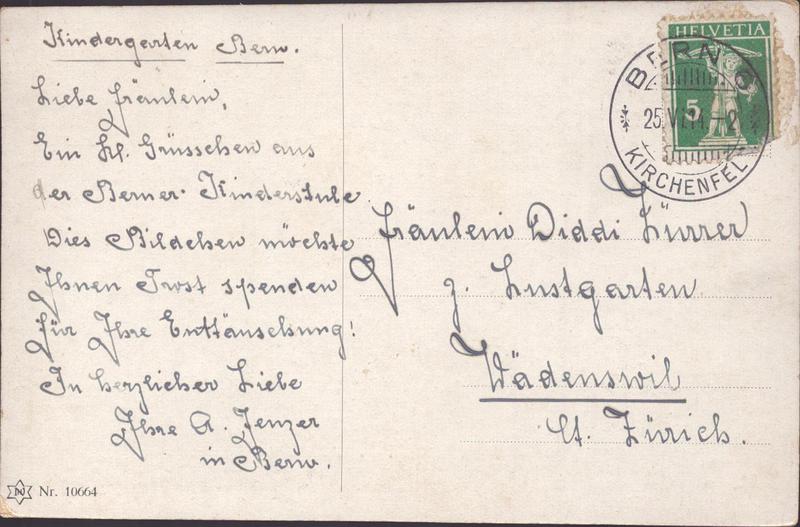 Kindergarten Bern.
Liebe Fräulein,
Ein kl. Grüsschen aus
der Berner Kinderstube
Dies Bildchen möchte
Ihnen Trost spenden
für Ihre Enttäuschung!
In herzlicher Liebe
Ihre A. Jenzer
in Bern.
Nr. 10664
HELVETIA
5
BERN 6
25.VI.14.-2
KIRCHENFELD
Fräulein Diddi Zürrer
z. Lustgarten
Wädenswil
Ct. Zürich.